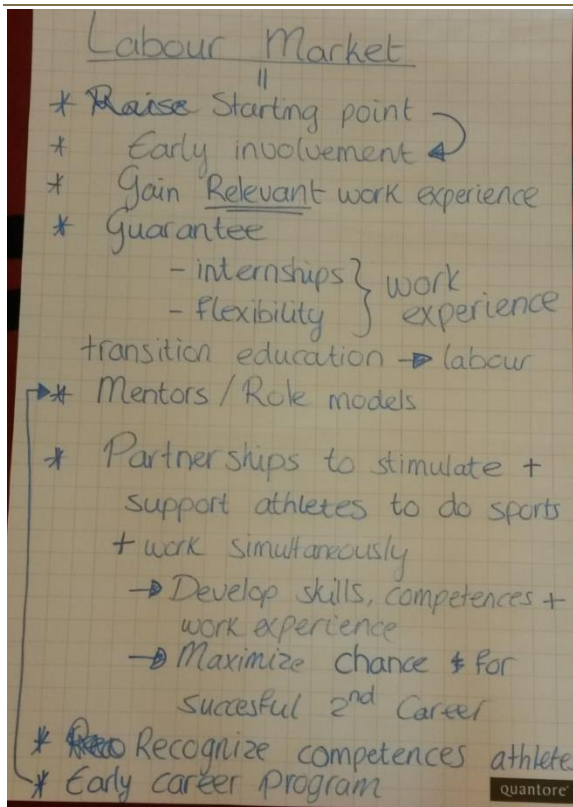 Labour Market
* Raise Starting point
* Early involvement
* Gain Relevant work experience
* Guarantee
- internships } work
- flexibility } experience
transition education → labour
* Mentors / Role models
* Partnerships to stimulate +
support athletes to do sports
+ work simultaneously
→ Develop skills, competences +
work experience
→ Maximize chance for
succesful 2nd Career
* Recognize competences athlete
* Early career program
quantore